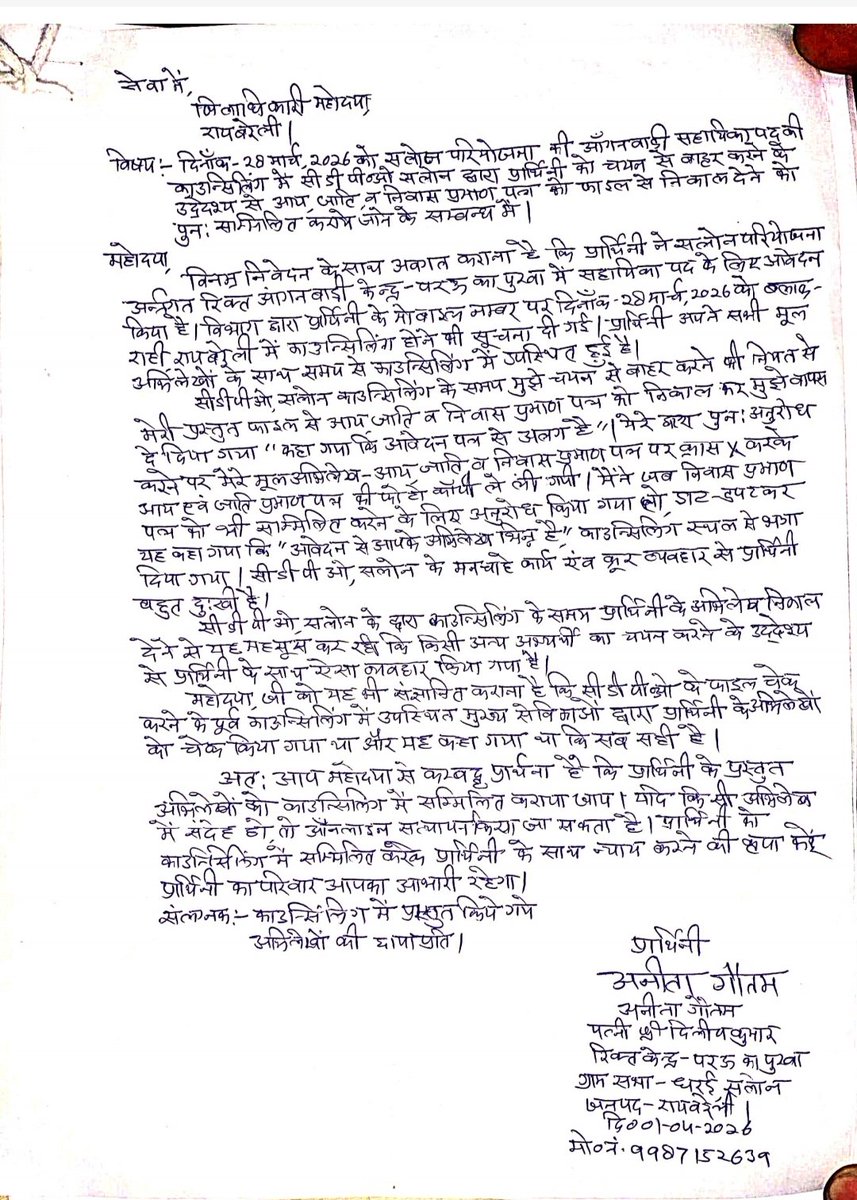 सेवा में,
जिलाधिकारी महोदया,
रायबरेली।
विषय:- दिनाँक-28 मार्च, 2026 को सलोन परियोजना की आँगनवाडी सहायिका पद की
काउन्सिलिंग में सी डी पी ओ सलोन द्वारा प्रार्थिनी को चयन से बाहर करने के
उद्देश्य से आय, जाति, व निवास प्रमाण पत्र को फाइल से निकाल देने को
पुन: सम्मिलित कराये जाने के सम्बन्ध में।
महोदया,
विनम्र निवेदन के साथ अवगत कराना है कि प्रार्थिनी ने सलोन परियोजना
अर्न्तगत रिक्त आंगनवाडी केन्द्र-परऊ का पुरवा में सहायिका पद के लिए आवेदन
किया है। विभाग द्वारा प्रार्थिनी के मोबाइल नम्बर पर दिनाँक-28 मार्च, 2026 को ब्लाक-
राही रायबरेली में काउन्सिलिंग होने की सूचना दी गई। प्रार्थिनी अपने सभी मूल
अभिलेखों के साथ समय से काउन्सिलिंग में उपस्थित हुई है।
सीडीपीओ, सलोन काउन्सिलिंग के समय मुझे चयन से बाहर करने की नियत से
मेरी प्रस्तुत फाइल से आय जाति व निवास प्रमाण पत्र को निकाल कर मुझे वापस
दे दिया गया "कहा गया कि आवेदन पत्र से अलग है"। मेरे द्वारा पुन: अनुरोध
करने पर मेरे मूल अभिलेख-आय जाति व निवास प्रमाण पत्र पर क्रास X करके
आय एवं जाति प्रमाण पत्र की फोटो कॉपी ले ली गयी। मैंने जब निवास प्रमाण
पत्र को भी सम्मिलित करने के लिए अनुरोध किया गया तो, डाट-डपट कर
यह कहा गया कि "आवेदन से आपके अभिलेख भिन्न है" काउन्सिलिंग स्थल से भगा
दिया गया। सी डी पी ओ, सलोन के मनचाहे कार्य एंव क्रूर व्यवहार से प्रार्थिनी
बहुत दु:खी है।
सी डी पी ओ, सलोन के द्वारा काउन्सिलिंग के समय प्रार्थिनी के अभिलेख निकाल
देने से यह महसूस कर रही कि किसी अन्य अभ्यर्थी का चयन करने के उद्देश्य
से प्रार्थिनी के साथ ऐसा व्यवहार किया गया है।
महोदया, जी को यह भी संज्ञानित कराना है कि सी डी पी ओ के फाइल चेक
करने के पूर्व काउन्सिलिंग में उपस्थित मुख्य सेविकाओं द्वारा प्रार्थिनी के अभिलेखों
को चेक किया गया था और यह कहा गया था कि सब सही है।
अत: आप महोदया से करबद्ध प्रार्थना है कि प्रार्थिनी के प्रस्तुत
अभिलेखों को काउन्सिलिंग में सम्मिलित कराया जाय। यदि किसी अभिलेख
में संदेह हो तो ऑनलाइन सत्यापन किया जा सकता है। प्रार्थिनी को
काउन्सिलिंग में सम्मिलित करके प्रार्थिनी के साथ न्याय करने की कृपा करें
प्रार्थिनी का परिवार आपका आभारी रहेगा।
संलग्नक:- काउन्सिलिंग में प्रस्तुत किये गये
अभिलेखों की छायाप्रति।
प्रार्थिनी
अनीता गौतम
अनीता गौतम
पत्नी श्री दिलीप कुमार
रिक्त केन्द्र-परऊ का पुरवा
ग्राम सभा-धरई सलोन
जनपद-रायबरेली।
दि001-04-2026
मो०नं. 9987152639